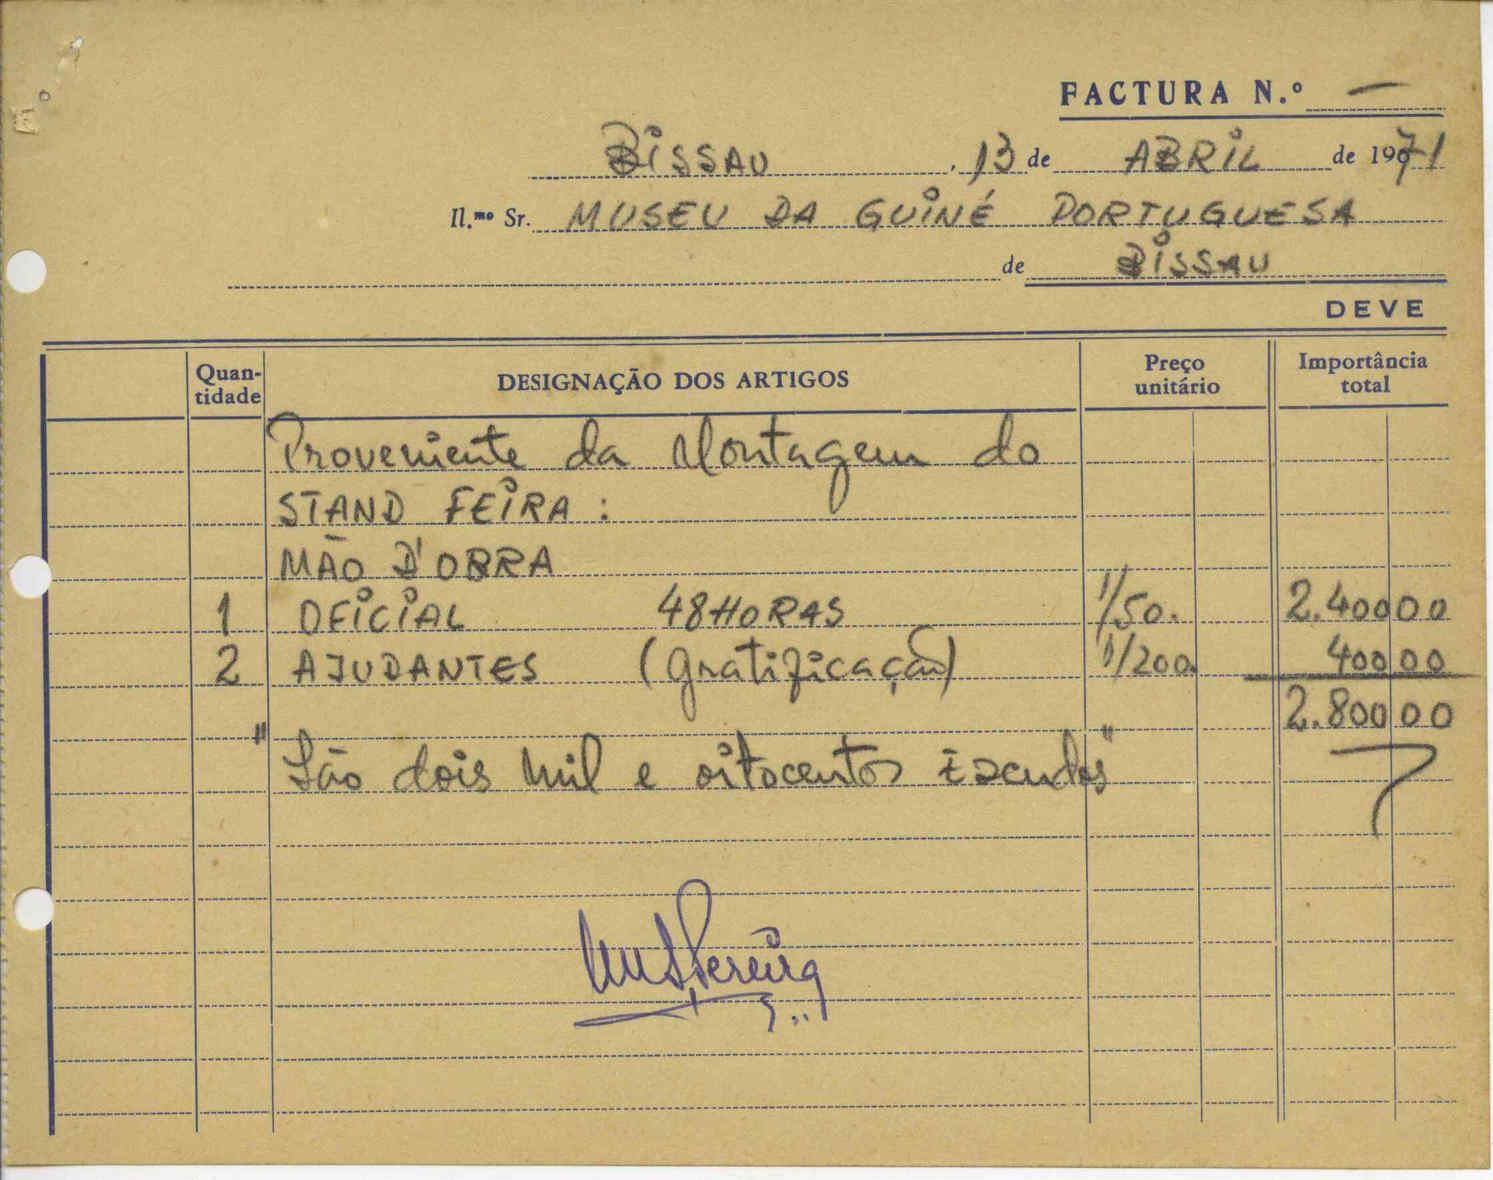 FACTURA N.º —
BISSAU, 13 de ABRIL de 1971
Il.mo Sr. MUSEU DA GUINÉ PORTUGUESA
de BISSAU
DEVE
Quantidade DESIGNAÇÃO DOS ARTIGOS Preço unitário Importância total
Proveniente da Montagem do
STAND FEIRA :
MÃO D'OBRA
1 OFICIAL 48 HORAS 1/50. 2.400 00
2 AJUDANTES (Gratificação) 1/200. 400 00
2.800 00
"São dois mil e oitocentos Escudos"
Pereira